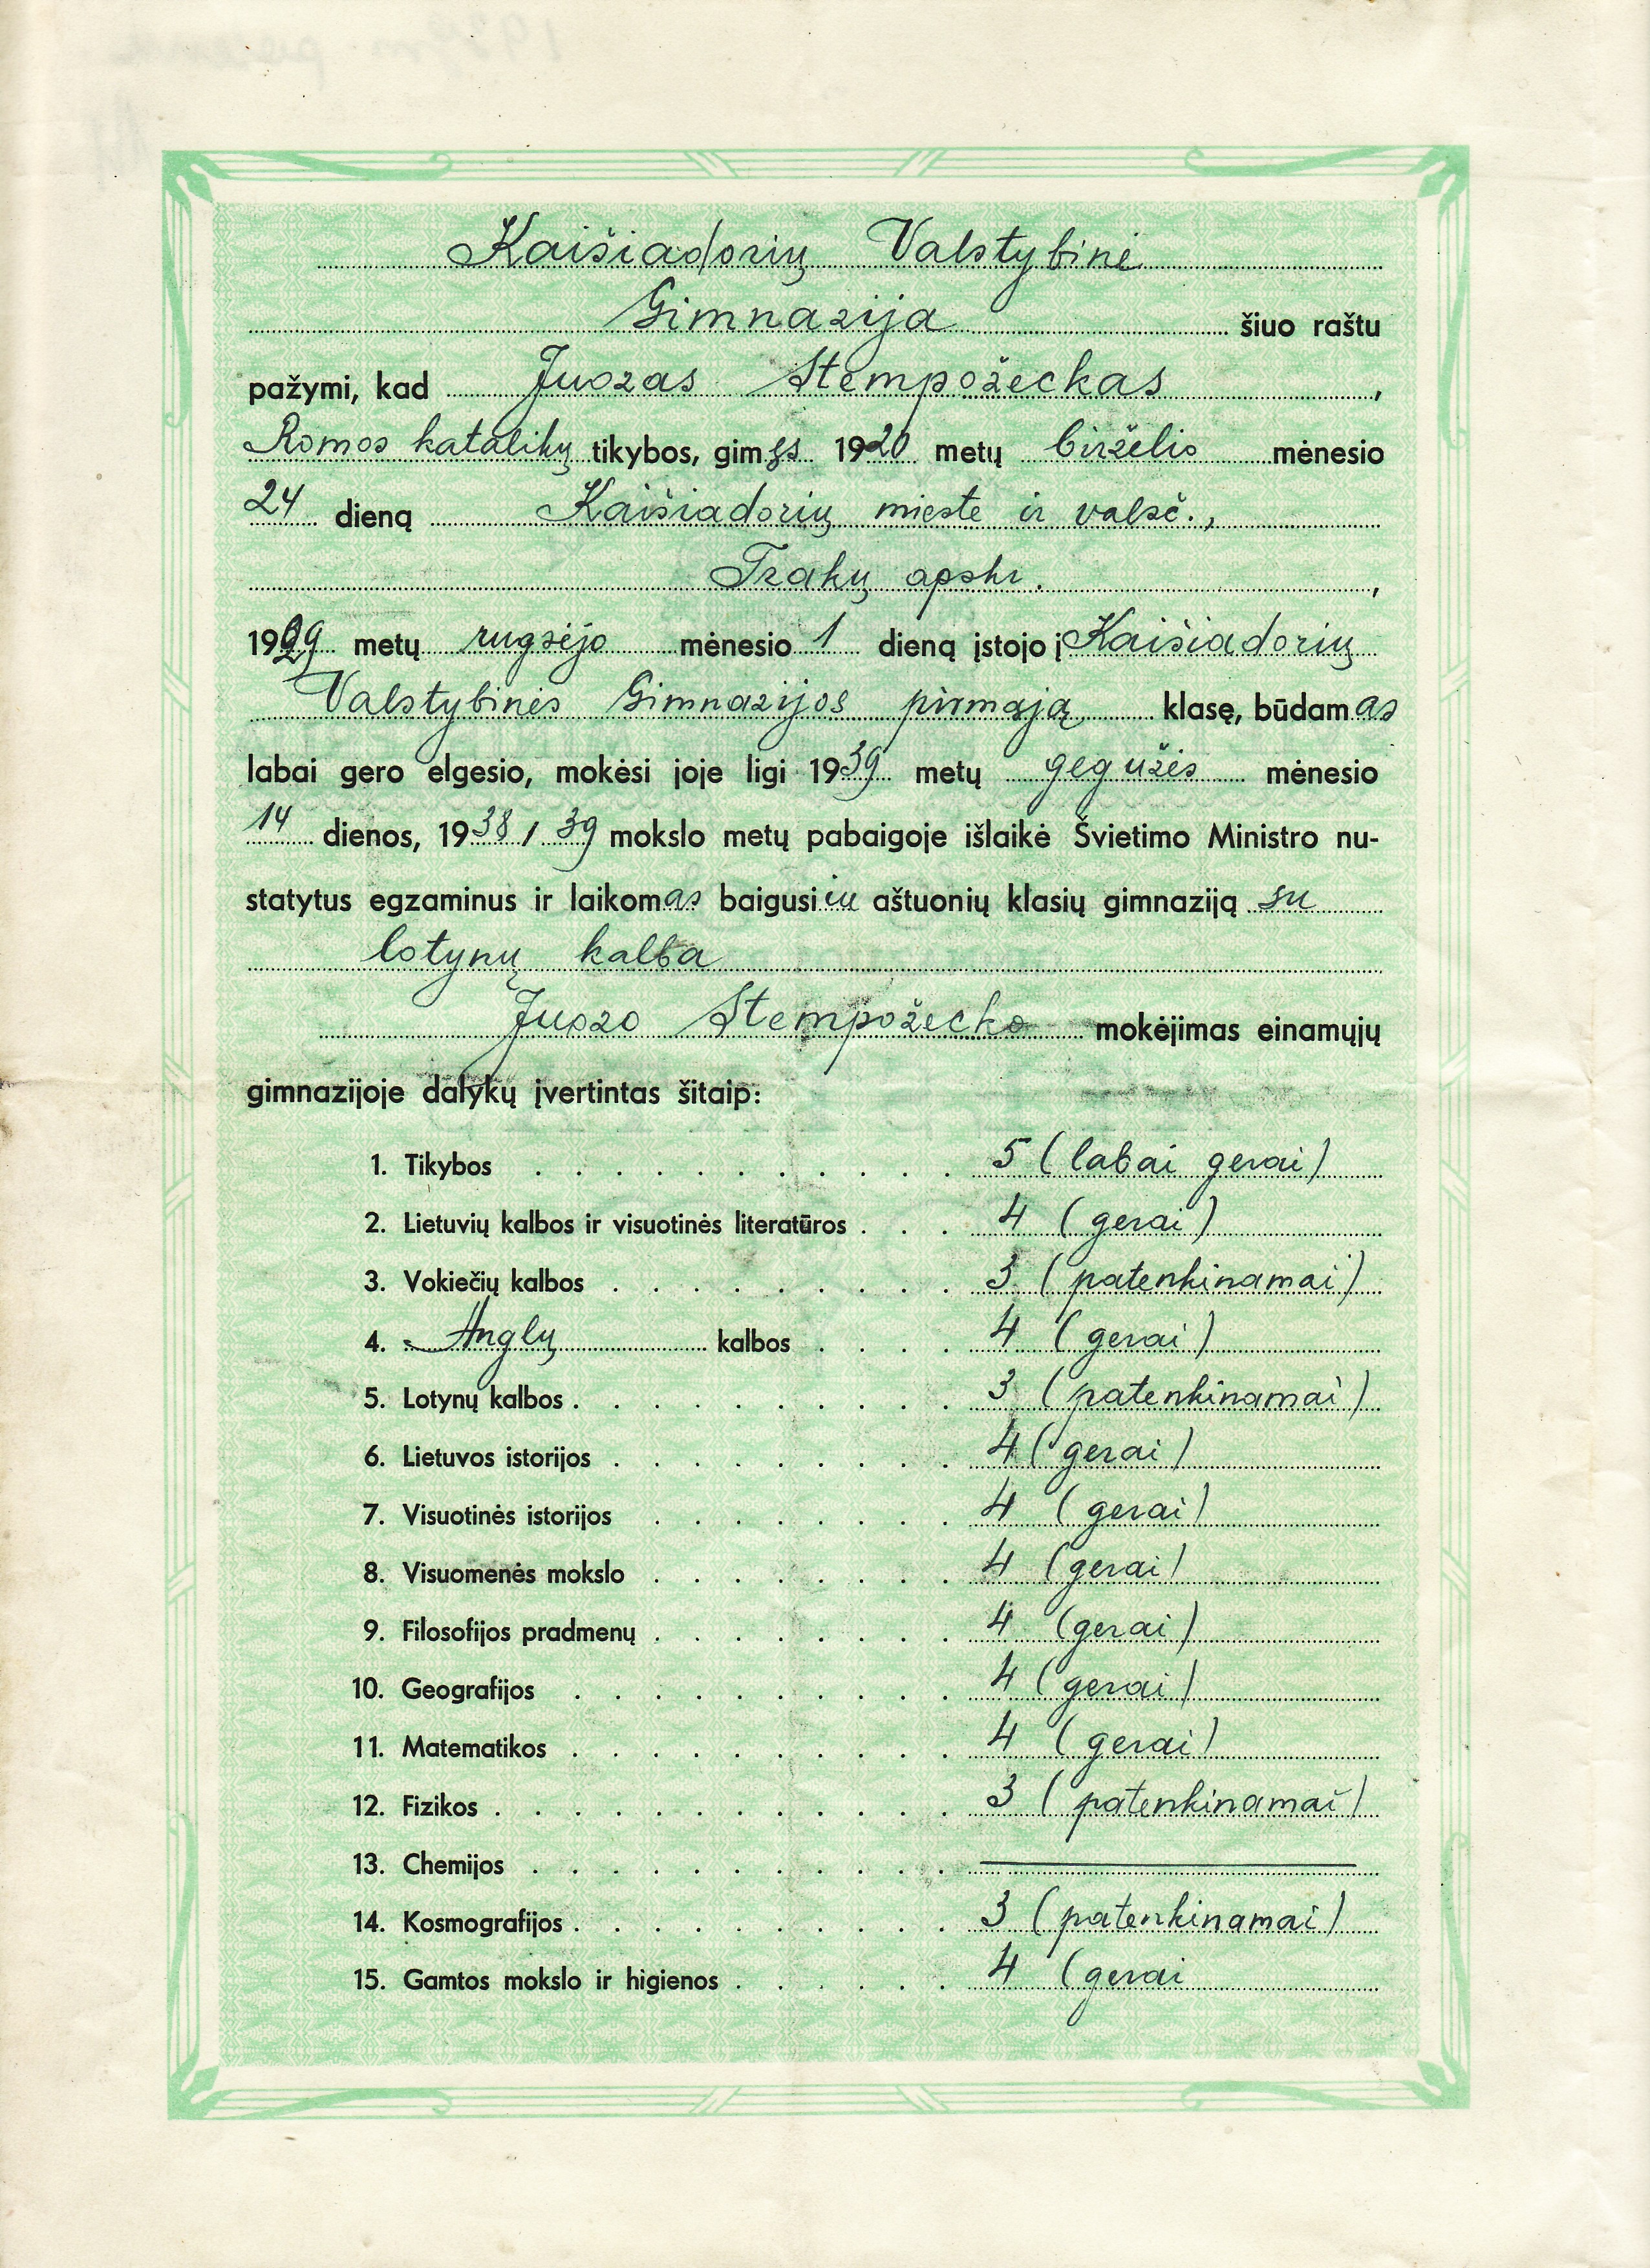 Kaišiadorių Valstybinė
Gimnazija šiuo raštu
pažymi, kad Juozas Stempožeckas,
Romos katalikų tikybos, gimęs 1920 metų birželio mėnesio
24 dieną Kaišiadorių mieste ir valsč.,
Trakų apskr.,
1929 metų rugsėjo mėnesio 1 dieną įstojo į Kaišiadorių
Valstybinės Gimnazijos pirmąją klasę, būdamas
labai gero elgesio, mokėsi joje ligi 1939 metų gegužės mėnesio
14 dienos, 1938/39 mokslo metų pabaigoje išlaikė Švietimo Ministro nu-
statytus egzaminus ir laikomas baigusiu aštuonių klasių gimnaziją su
lotynų kalba
Juozo Stempožecko mokėjimas einamųjų
gimnazijoje dalykų įvertintas šitaip:
1. Tikybos . . . . . . . . . . . 5 (labai gerai)
2. Lietuvių kalbos ir visuotinės literatūros . . . 4 (gerai)
3. Vokiečių kalbos . . . . . . . . . 3 (patenkinamai)
4. Anglų kalbos . . . . 4 (gerai)
5. Lotynų kalbos . . . . . . . . . . 3 (patenkinamai)
6. Lietuvos istorijos . . . . . . . . . 4 (gerai)
7. Visuotinės istorijos . . . . . . . . 4 (gerai)
8. Visuomenės mokslo . . . . . . . . 4 (gerai)
9. Filosofijos pradmenų . . . . . . . . 4 (gerai)
10. Geografijos . . . . . . . . . . 4 (gerai)
11. Matematikos . . . . . . . . . . 4 (gerai)
12. Fizikos . . . . . . . . . . . . 3 (patenkinamai)
13. Chemijos . . . . . . . . . . . —
14. Kosmografijos . . . . . . . . . . 3 (patenkinamai)
15. Gamtos mokslo ir higienos . . . . . . 4 (gerai